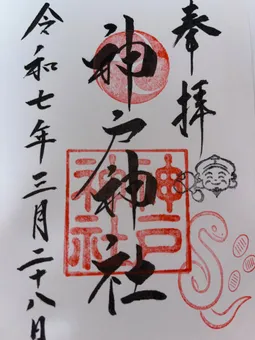 奉拝
神戸神社
神戸神社
令和七年三月二十八日